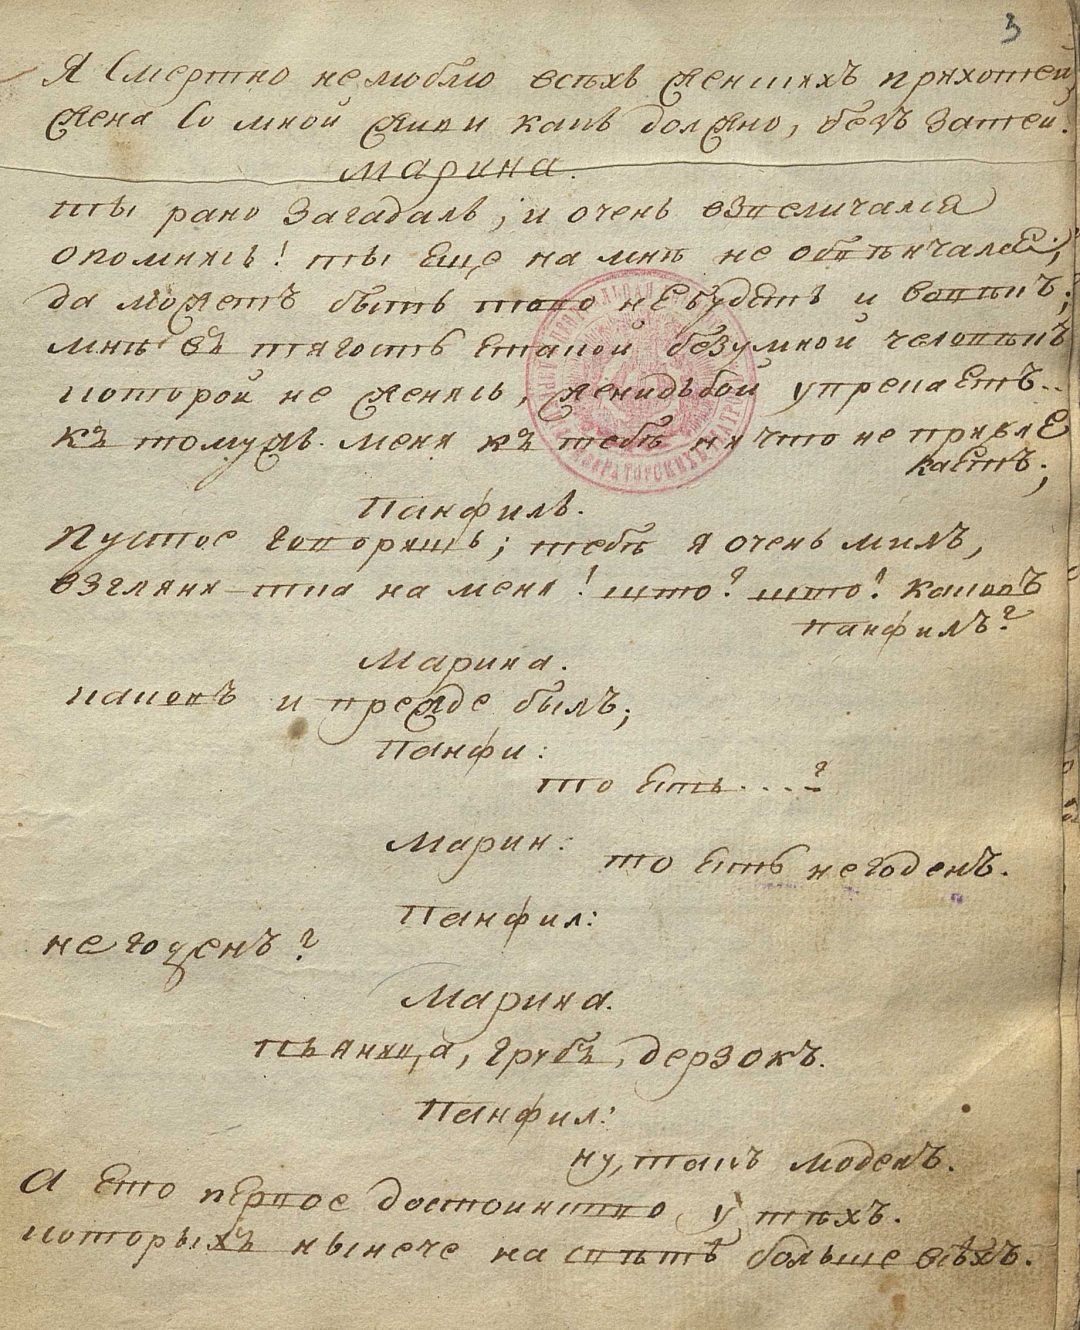 3
Я Смертно нелюблю всѣхъ женшихъ прихотей,
жена Со мной живи какъ должно, безъ Затей.
Марина.
ты рано Загадалъ, и очень взвеличался
опомнись! ты Еще на мнѣ не обвѣнчалсЯ,
да можетъ быть тово неБудетъ и вовѣкъ;
мнѣ въ тягость Етакой безумной человѣкъ
которой не женясь, женидьбой упрекаЕтъ..
къ томужъ меня къ тебѣ ни что не привлЕ
каЕтъ;
Панфилъ.
Пустое говоришъ; тебѣ я очень милъ,
взгляни-тка на меня! што? што! каковъ
панфилъ?
Марина.
каковъ и прежде былъ;
Панфи:
то Есть....?
Марин:
то Есть негоденъ.
Панфил:
негоденъ?
Марина.
пьяница, грубъ, дерзокъ.
Панфил:
ну, такъ моденъ.
А Ето пЕрвое достоинство у тѣхъ.
которыхъ нынече на свѣтѣ больше всѣхъ.